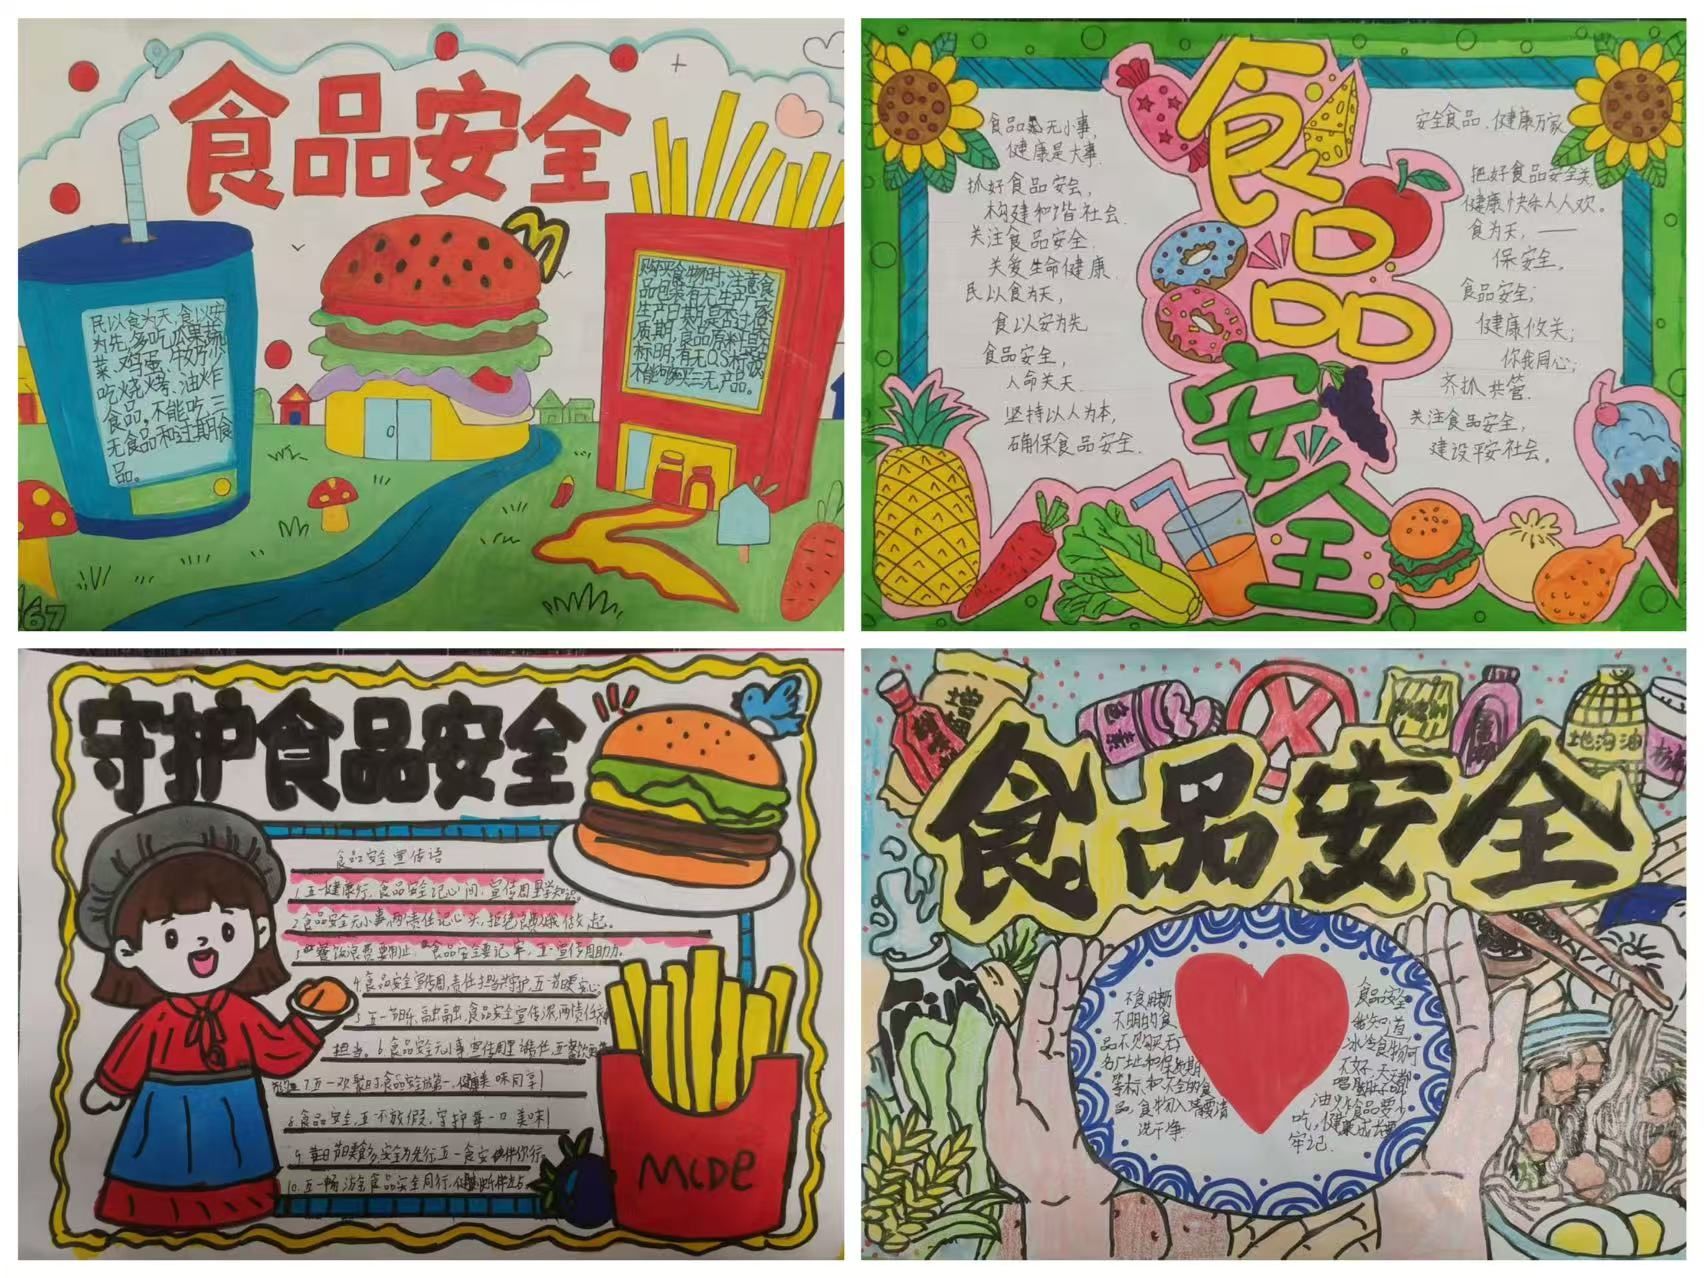 食品安全
民以食为天,食以安
为先,多吃瓜果蔬
菜、鸡蛋、牛奶,少
吃烧烤、油炸
食品,不能吃三
无食品和过期食
品。
购买食物时,注意食
品包装有无生产厂家
生产日期,是否过保
质期,食品原料是否
标明,有无QS标识
不能够买三无产品。
67
食品安全
食品 无小事,
健康是大事.
抓好食品安会,
构建和谐社会.
关注食品安全.
关爱生命健康.
民以食为天,
食以安为先
食品安全,
人命关天.
坚持以人为本,
确保食品安全.
安全食品、健康万家
把好食品安全关,
健康快乐人人欢。
食为天,——
保安全。
食品安全;
健康攸关;
你我同心;
齐抓共管.
关注食品安全,
建设平安社会。
守护食品安全
食品安全宣传语
1.五一健康行,食品安全记心间,宣传周里学知识。
2.食品安全无小事,两责任记心头,拒绝
食品安全要记牢,五一宣传周助力。
4.食品安全宣传周,责任担当共守护,五一节暖安心。
5.五一节日乐融融,食品安全宣传浓,两责任
担当。6.食品安全无小事,宣传周里
7.五一欢聚时,食品安全放第一,健康美味同享!
8.食品安全,五一不放假,守护每一口美味!
安全为先行,五一食安伴你行
10.五一畅游,食品安全同行,
MCDE
食品安全
地沟油
色素
不食用
不明的食
品不购买无厂
名厂址和保质期
等标 和不全的食
品,食物入 要清
洗干净.
食品安全
我知道
冰冷食物
不好,天天
喝 肚子
油炸食品要少
吃,健康成长要
牢记.